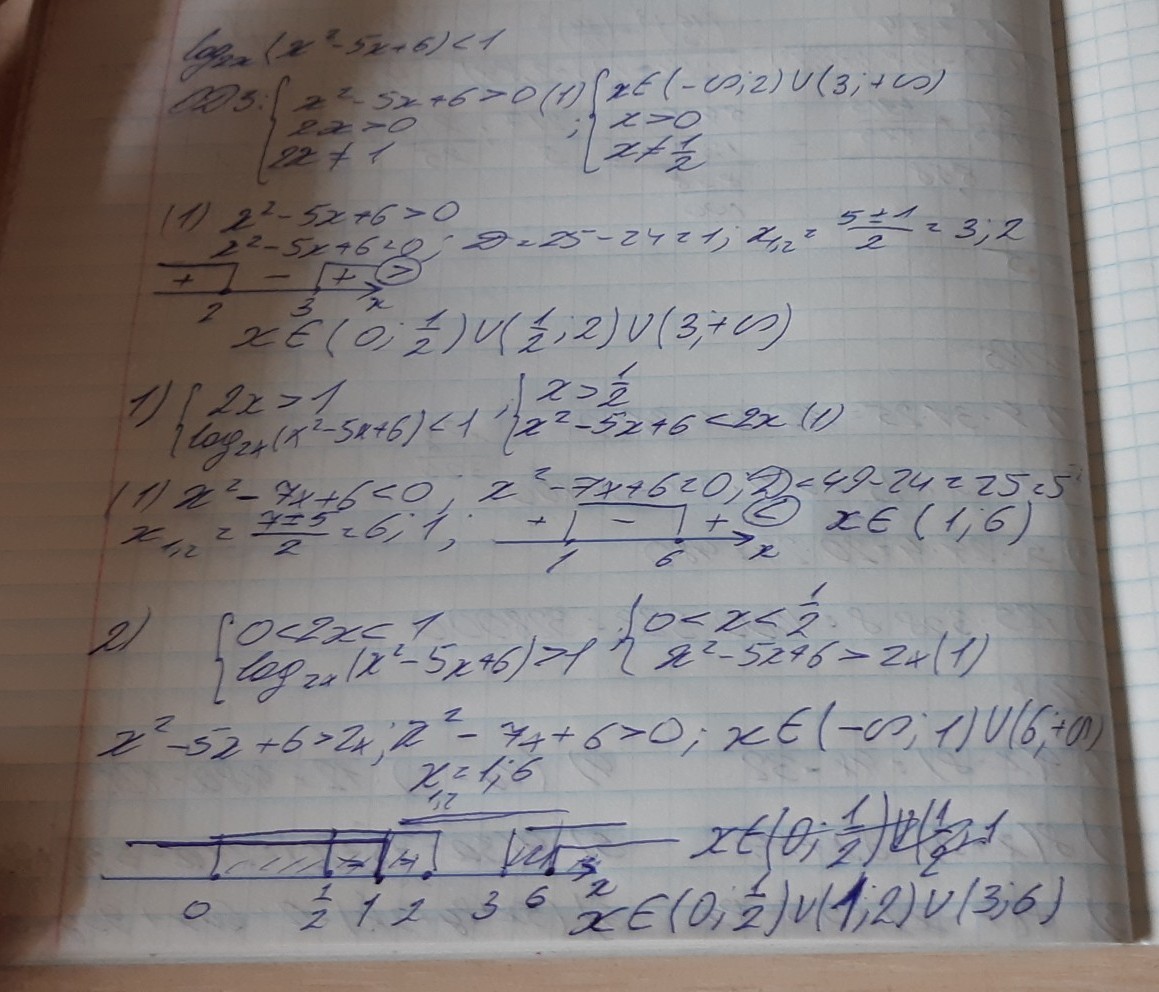 log₂ₓ(x²-5x+6)<1
ОДЗ: { x²-5x+6>0 (1) { x∈(-∞;2)∪(3;+∞)
2x>0 ; x>0
2x≠1 x≠1/2
(1) x²-5x+6>0
x²-5x+6=0; D=25-24=1; x₁,₂=(5±1)/2=3;2
+ - + >
2 3 x
x∈(0;1/2)∪(1/2;2)∪(3;+∞)
1) { 2x>1 ; { x>1/2
log₂ₓ(x²-5x+6)<1 x²-5x+6<2x (1)
(1) x²-7x+6<0; x²-7x+6=0; D=49-24=25=5²
x₁,₂=(7±5)/2=6;1; + - + < x∈(1;6)
1 6 x
2) { 0<2x<1 ; { 0<x<1/2
log₂ₓ(x²-5x+6)>1 x²-5x+6>2x (1)
x²-5x+6>2x; x²-7x+6>0; x∈(-∞;1)∪(6;+∞)
x₁,₂=1;6
x∈(0;1/2)∪(1/2
0 1/2 1 2 3 6 x
x∈(0;1/2)∪(1;2)∪(3;6)